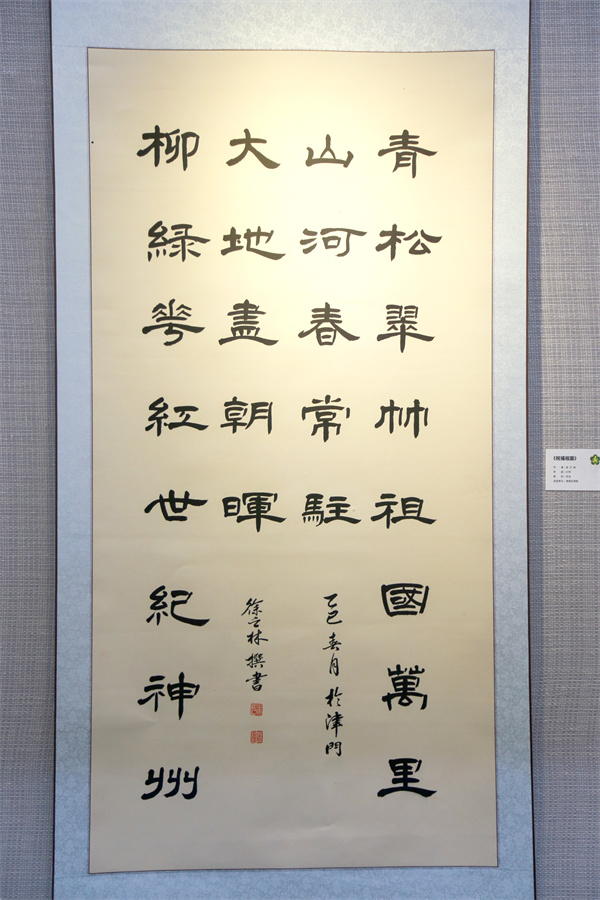 青松翠竹祖國萬里
山河春常駐
乙巳春月於津門
柳緑華紅世紀神州
大地盡朝暉
徐林撰書
《祝福祖国》